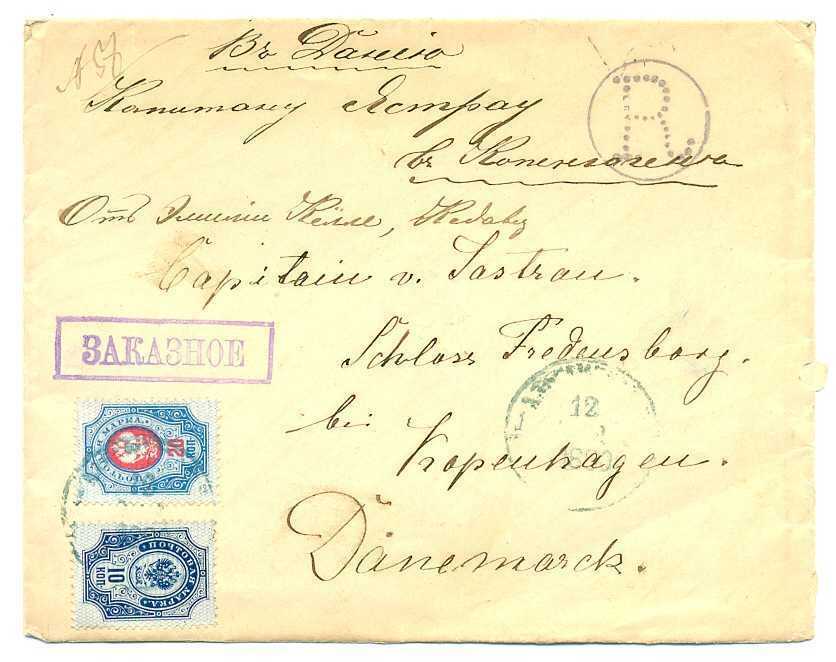 № 57
Въ Данію
Капитану Ястрау
въ Копенгагенъ
Отъ Эмиліи Келле,
Capitain v. Jastrau.
ЗАКАЗНОЕ
Schloss Fredensborg.
bei
Kopenhagen.
Dänemarck.
R.
12
ПОЧТОВАЯ МАРКА
20 КОП
ПОЧТОВАЯ МАРКА.
10 КОП